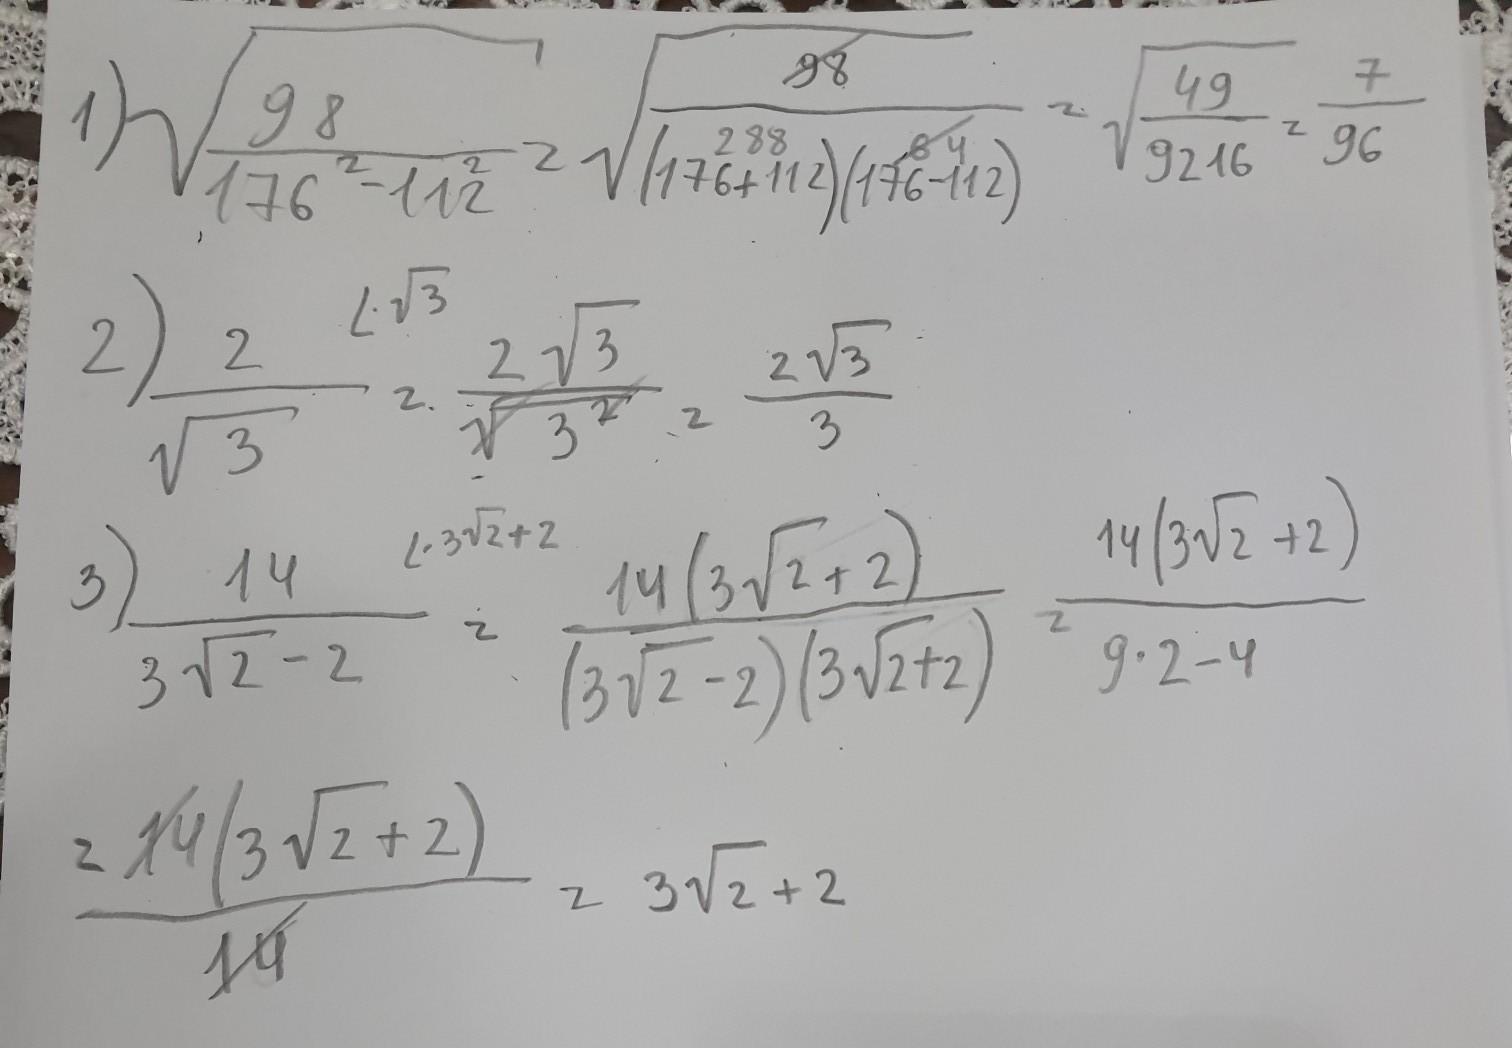 1) √(98/(176²-112²)) = √(98/((176+112)(176-112))) = √(49/9216) = 7/96
288 64
2) 2/√3 |·√3 = 2√3/√3² = 2√3/3
3) 14/(3√2-2) |·3√2+2 = 14(3√2+2)/((3√2-2)(3√2+2)) = 14(3√2+2)/(9·2-4)
= 14(3√2+2)/14 = 3√2+2